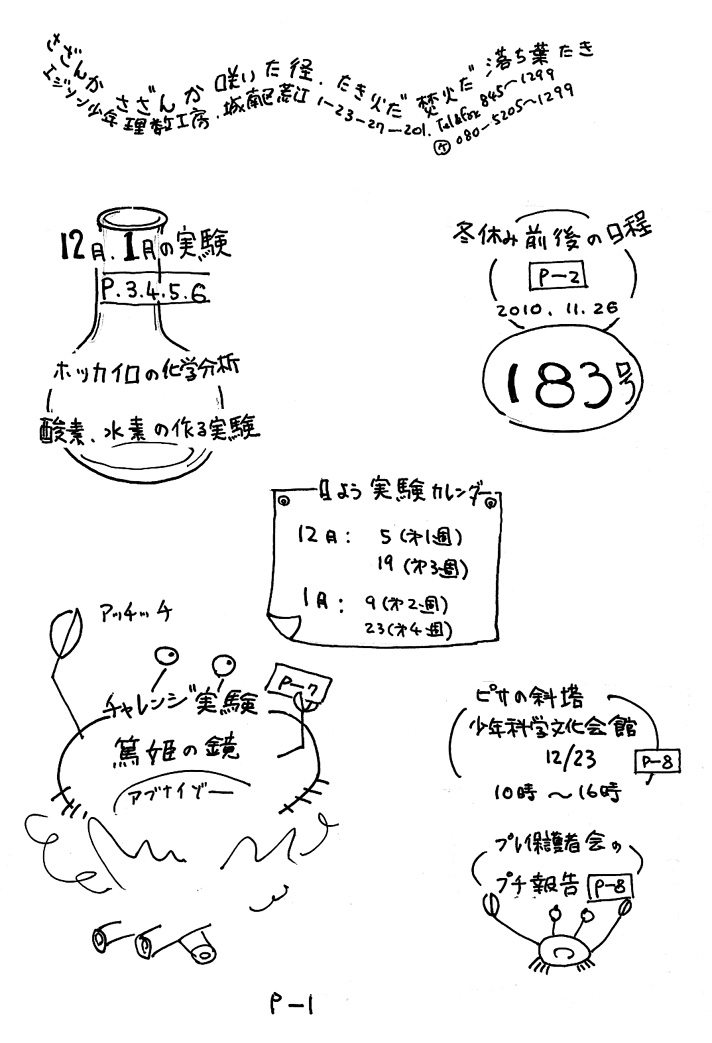 さざんか さざんか 咲いた径、たき火だ 焚火だ 落ち葉たき
エジソン少年理数工房.城南区荒江1-23-27-201.Tel&fax 845〜1299
㋘080-5205〜1299
12月、1月の実験
P.3.4.5.6
ホッカイロの化学分析
酸素、水素の作る実験
冬休み前後の日程
P-2
2010.11.26
183号
日よう実験カレンダー
12月: 5(第1週)
19(第3週)
1月: 9(第2週)
23(第4週)
アッチッチ
P-7
チャレンジ実験
篤姫の鏡
アブナイゾー
ピサの斜塔
少年科学文化会館
12/23
P-8
10時〜16時
プレ保護者会の
プチ報告 P-8
P-1